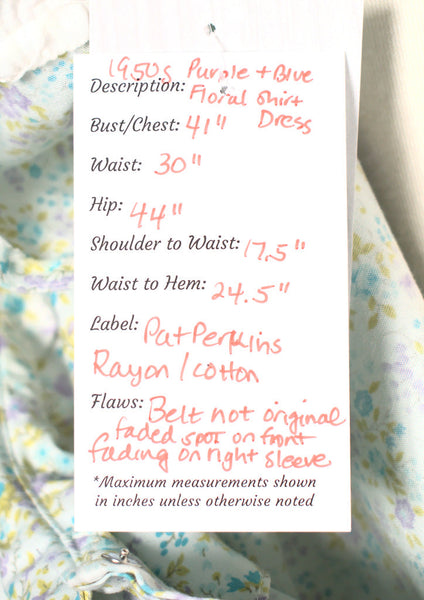 1950s Purple + Blue
Description: Floral Shirt
Bust/Chest: 41" Dress
Waist: 30"
Hip: 44"
Shoulder to Waist: 17.5"
Waist to Hem: 24.5"
Label: Pat Perkins
Rayon / Cotton
Flaws: Belt not original
faded spot on front
fading on right sleeve
*Maximum measurements shown
in inches unless otherwise noted